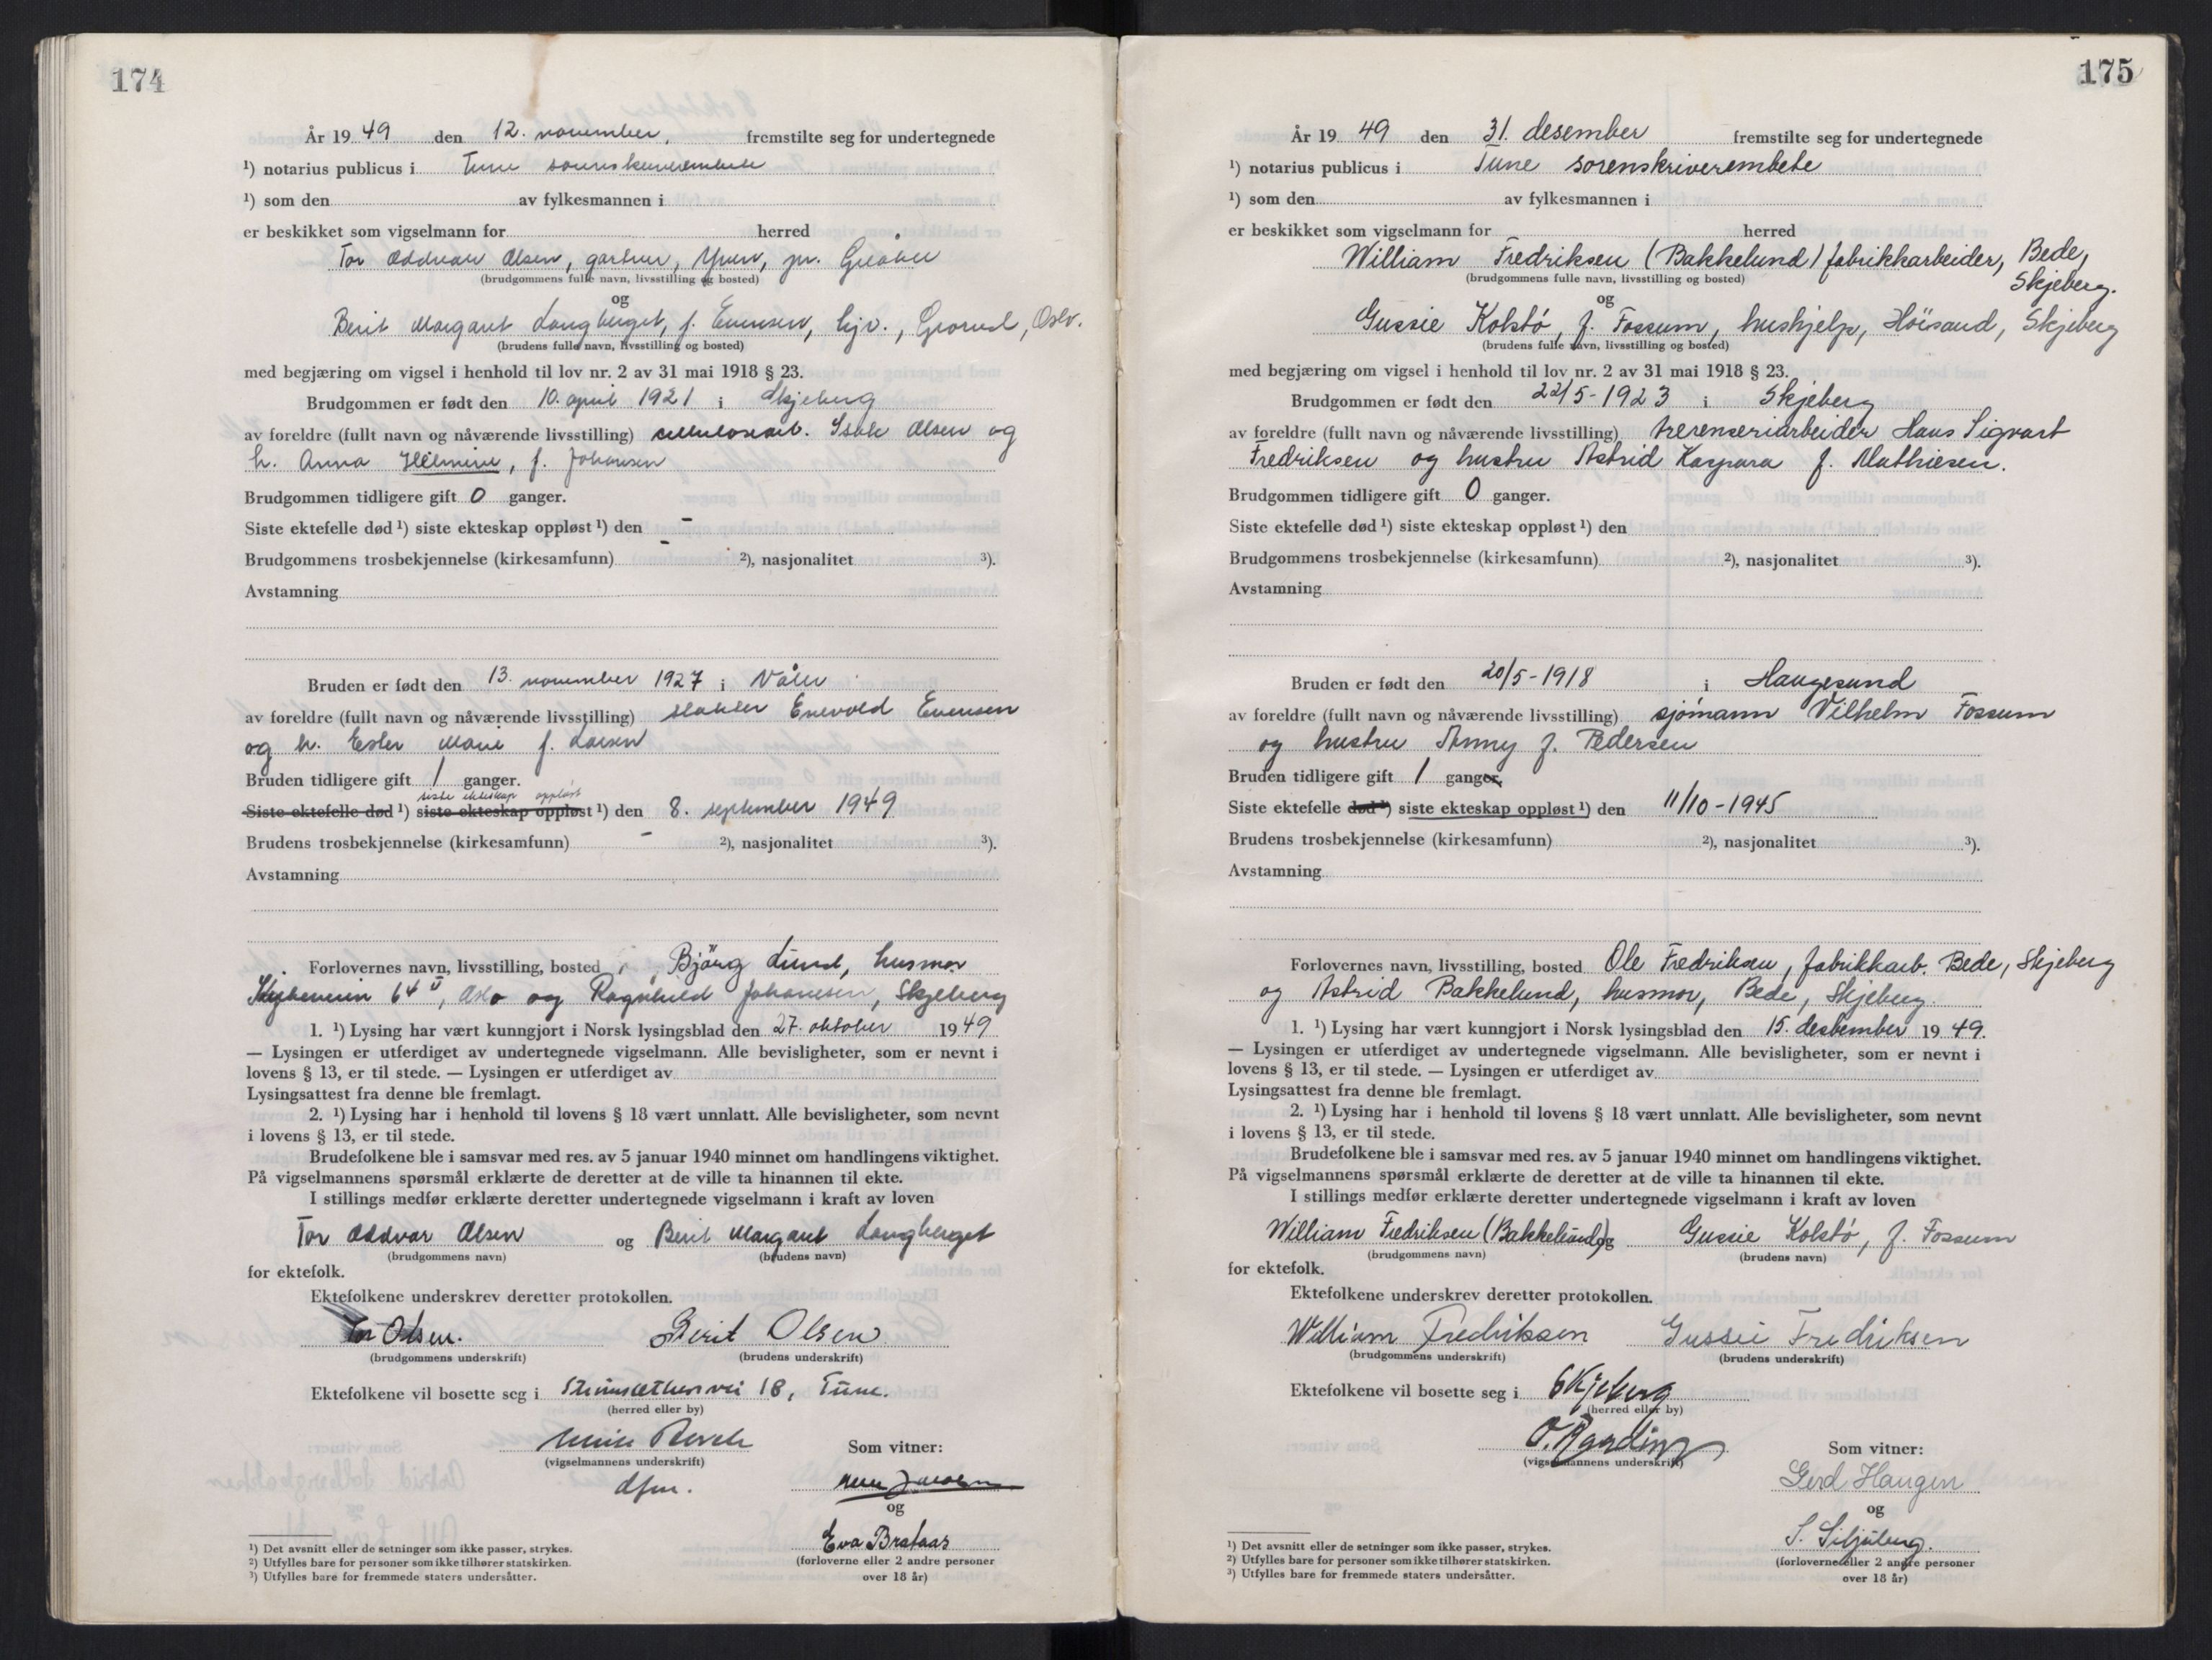 174
År 19 49 den 12. november, fremstilte seg for undertegnede
¹) notarius publicus i Tune sorenskriverembede
¹) som den av fylkesmannen i
er beskikket som vigselmann for herred
Tor Oddvar Olsen, gartner, Yven, pr. Greåker
(brudgommens fulle navn, livsstilling og bosted)
og
Berit Margant Langberget, f. Evensen, hjv., Grorud, Oslo.
(brudens fulle navn, livsstilling og bosted)
med begjæring om vigsel i henhold til lov nr. 2 av 31 mai 1918 § 23.
Brudgommen er født den 10. april 1921 i Skjeberg
av foreldre (fullt navn og nåværende livsstilling) cellulosearb. Isak Olsen og
h. Anna Helmine, f. Johansen
Brudgommen tidligere gift 0 ganger.
Siste ektefelle død ¹) siste ekteskap oppløst ¹) den -
Brudgommens trosbekjennelse (kirkesamfunn) - ²), nasjonalitet ³).
Avstamning
Bruden er født den 13. november 1927 i Våler
av foreldre (fullt navn og nåværende livsstilling) Enevold Evensen
og h. Ester Marie f. Larsen
Bruden tidligere gift 1 ganger.
siste ekteskap oppløst
Siste ektefelle død ¹) siste ekteskap oppløst ¹) den 8. september 1949
Brudens trosbekjennelse (kirkesamfunn) - ²), nasjonalitet ³).
Avstamning
Forlovernes navn, livsstilling, bosted Björg Lund, husmor
64 II, Oslo og Ragnhild Johansen, Skjeberg
1. ¹) Lysing har vært kunngjort i Norsk lysingsblad den 27. oktober 1949
— Lysingen er utferdiget av undertegnede vigselmann. Alle bevisligheter, som er nevnt i
lovens § 13, er til stede. — Lysingen er utferdiget av
Lysingsattest fra denne ble fremlagt.
2. ¹) Lysing har i henhold til lovens § 18 vært unnlatt. Alle bevisligheter, som nevnt
i lovens § 13, er til stede.
Brudefolkene ble i samsvar med res. av 5 januar 1940 minnet om handlingens viktighet.
På vigselmannens spørsmål erklærte de deretter at de ville ta hinannen til ekte.
I stillings medfør erklærte deretter undertegnede vigselmann i kraft av loven
Tor Oddvar Olsen og Berit Margant Langberget
(brudgommens navn) (brudens navn)
for ektefolk.
Ektefolkene underskrev deretter protokollen.
Tor Olsen. Berit Olsen
(brudgommens underskrift) (brudens underskrift)
Ektefolkene vil bosette seg i 18, Tune.
(herred eller by)
Som vitner:
(vigselmannens underskrift)
dfm.
og
Eva Brataas
(forloverne eller 2 andre personer
over 18 år)
¹) Det avsnitt eller de setninger som ikke passer, strykes.
²) Utfylles bare for personer som ikke tilhører statskirken.
³) Utfylles bare for fremmede staters undersåtter.
175
År 19 49 den 31. desember fremstilte seg for undertegnede
¹) notarius publicus i Tune sorenskriverembete
¹) som den av fylkesmannen i
er beskikket som vigselmann for herred
William Fredriksen (Bakkelund) fabrikkarbeider, Bede,
Skjeberg.
(brudgommens fulle navn, livsstilling og bosted)
og
Gussie Kolstó, f. Fossum, hushjelp, Höisand, Skjeberg
(brudens fulle navn, livsstilling og bosted)
med begjæring om vigsel i henhold til lov nr. 2 av 31 mai 1918 § 23.
Brudgommen er født den 22/5-1923 i Skjeberg
av foreldre (fullt navn og nåværende livsstilling) trerenseriarbeider Hans Sigvart
Fredriksen og hustru Astrid Kaspara f. Mathiesen.
Brudgommen tidligere gift 0 ganger.
Siste ektefelle død ¹) siste ekteskap oppløst ¹) den
Brudgommens trosbekjennelse (kirkesamfunn) ²), nasjonalitet ³).
Avstamning
Bruden er født den 20/5-1918 i Haugesund
av foreldre (fullt navn og nåværende livsstilling) sjómann Vilhelm Fossum
og hustru Anny f. Pedersen
Bruden tidligere gift 1 ganger.
Siste ektefelle død ¹) siste ekteskap oppløst ¹) den 11/10-1945
Brudens trosbekjennelse (kirkesamfunn) ²), nasjonalitet ³).
Avstamning
Forlovernes navn, livsstilling, bosted Ole Fredriksen, fabrikkarb. Bede, Skjeberg
og Astrid Bakkelund, husmor, Bede, Skjeberg.
1. ¹) Lysing har vært kunngjort i Norsk lysingsblad den 15. desbember 1949.
— Lysingen er utferdiget av undertegnede vigselmann. Alle bevisligheter, som er nevnt i
lovens § 13, er til stede. — Lysingen er utferdiget av
Lysingsattest fra denne ble fremlagt.
2. ¹) Lysing har i henhold til lovens § 18 vært unnlatt. Alle bevisligheter, som nevnt
i lovens § 13, er til stede.
Brudefolkene ble i samsvar med res. av 5 januar 1940 minnet om handlingens viktighet.
På vigselmannens spørsmål erklærte de deretter at de ville ta hinannen til ekte.
I stillings medfør erklærte deretter undertegnede vigselmann i kraft av loven
William Fredriksen (Bakkelund) og Gussie Kolstó, f. Fossum
(brudgommens navn) (brudens navn)
for ektefolk.
Ektefolkene underskrev deretter protokollen.
William Fredriksen Gussie Fredriksen
(brudgommens underskrift) (brudens underskrift)
Ektefolkene vil bosette seg i Skjeberg
(herred eller by)
Som vitner:
(vigselmannens underskrift)
Gerd Haugen
og
(forloverne eller 2 andre personer
over 18 år)
¹) Det avsnitt eller de setninger som ikke passer, strykes.
²) Utfylles bare for personer som ikke tilhører statskirken.
³) Utfylles bare for fremmede staters undersåtter.